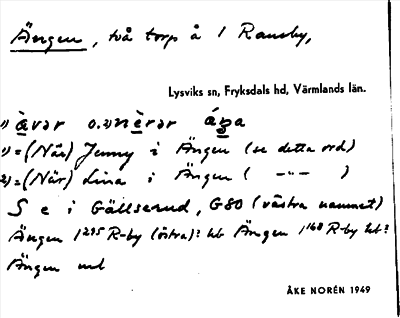 Ängen, två torp å 1 Ransby,
Lysviks sn, Fryksdals hd, Värmlands län.
1) àvər o. 2) nèrər áŋa
1) = (När) Jenny i Ängen (se detta ord)
2) = (När) Lina i Ängen ( -"- )
S e i Gällserud, G80 (västra namnet)
Ängen 1²⁹⁵ R-by (östra)? hb Ängen 1¹⁶⁸ R-by hb?
Ängen
ÅKE NORÉN 1949